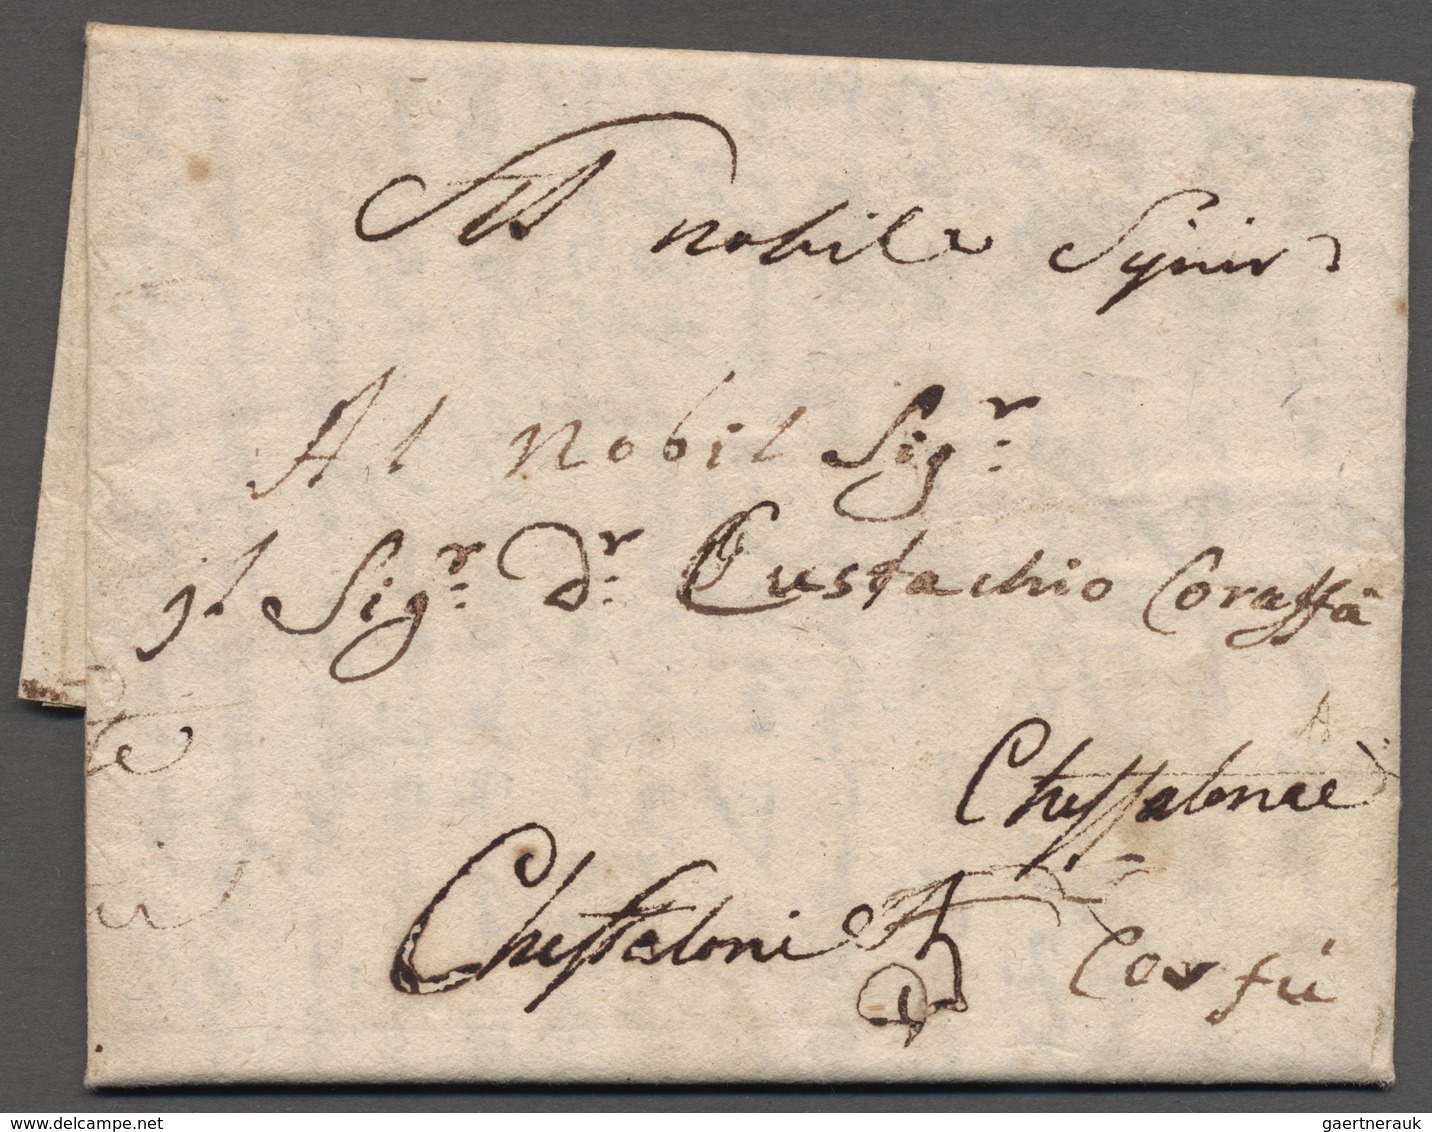 Al nobile Signir
Al Nobil Sig.r
il Sig.r d.r Eustachio Coraffà
te
Cheffalonie
Cheffalonie
Corfù
www.delcampe.net
gaertnerauk